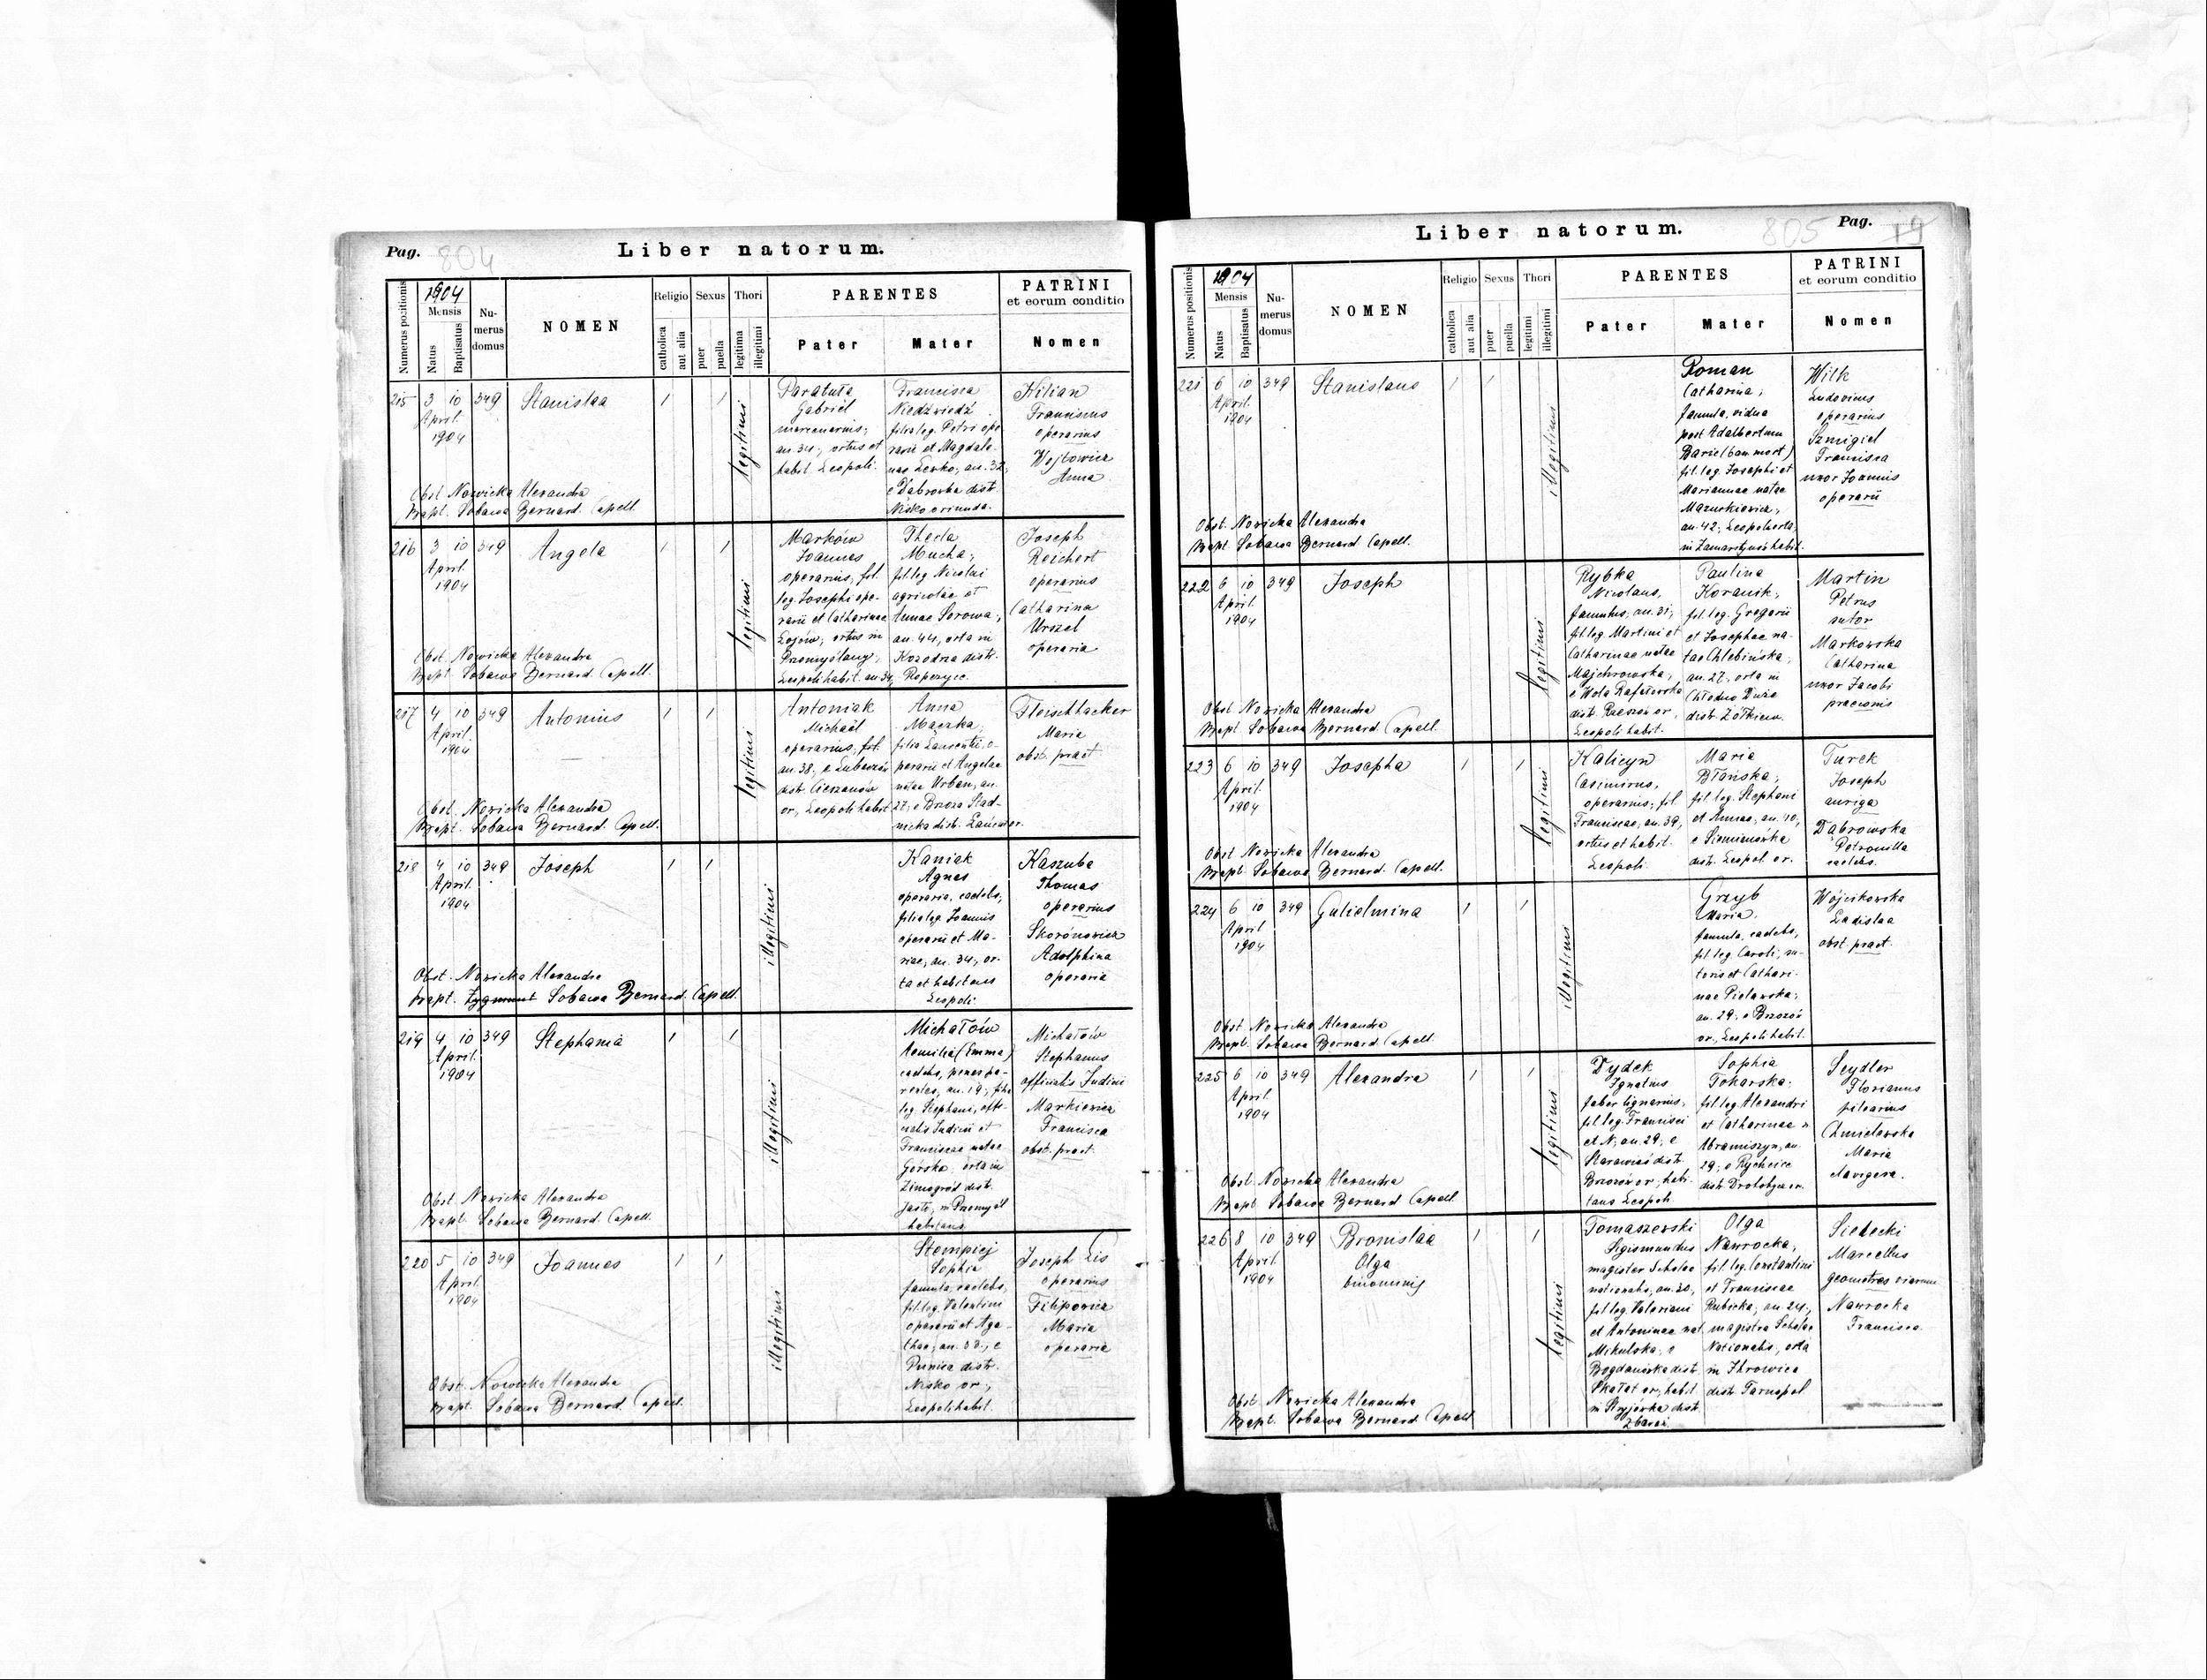 Pag. 804
Liber natorum.
Numerus positionis
1904
Mensis
Natus
Baptisatus
Nu-
merus
domus
NOMEN
Religio
catholica
aut alia
Sexus
puer
puella
Thori
legitima
illegitimi
PARENTES
Pater
Mater
PATRINI
et eorum conditio
Nomen
215 3 10 349 Stanislaa
April.
1904
legitimi
Gabriel
mercenarius;
an. 34, ortus et
habit. Leopoli.
Francisca
Niedźwiedź
filia leg. Petri ope-
rarii et Magdale-
nae Lesko, an. 32,
e Dąbrowka distr.
Nisko oriunda.
Kilian
Franciscus
operarius
Wojtowicz
Anna
Obst. Nowicka Alexandra
Bapt. Sobawa Bernard. Capell.
216 3 10 349 Angela
April.
1904
legitimi
Marków
Joannes
operarius, fil.
leg. Josephi ope-
rarii et Catharinae
Łojów; ortus in
Przemyślany,
Leopoli habit. an. 34,
Thecla
Mucha;
fil. leg. Nicolai
agricolae et
Annae Sorowa;
an. 44, orta in
Kozodrza distr.
Ropczyce.
Joseph
Reichert
operarius
Catharina
Urszel
operaria
Obst. Nowicka Alexandra
Bapt. Sobawa Bernard. Capell.
217 4 10 349 Antonius
April.
1904
legitimi
Antoniak
Michaël
operarius, fil.
an. 38, e Lubaczów
distr. Cieszanów
or., Leopoli habit.
Anna
Mączka,
filia Laurentii, o-
perarii et Angelae
natae Urban, an.
27, e Brzoza Stad-
nicka distr. Łańcut or.
Fleischhacker
Maria
obst. pract.
Obst. Nowicka Alexandra
Bapt. Sobawa Bernard. Capell.
218 4 10 349 Joseph
April.
1904
illegitimi
Kaniak
Agnes
operaria, caelebs,
filia leg. Joannis
operarii et Ma-
riae, an. 34, or-
ta et habitans
Leopoli.
Kaszuba
Thomas
operarius
Skorónowicz
Adolphina
operaria
Obst. Nowicka Alexandra
Bapt. Zygmunt Sobawa Bernard. Capell.
219 4 10 349 Stephania
April.
1904
illegitimi
Michałów
Aemilia (Emma)
caelebs, penes pa-
rentes, an. 19, filia
leg. Stephani, offi-
cialis Judicii et
Franciscae natae
Górska, orta in
Zimogród distr.
Jasło, in Przemyśl
habitans
Michałów
Stephanus
officialis Judicii
Markiewicz
Francisca
obst. pract.
Obst. Nowicka Alexandra
Bapt. Sobawa Bernard. Capell.
220 5 10 349 Joannes
April.
1904
illegitimi
Stempiej
Sophia
famula, caelebs,
fil. leg. Valentini
operarii et Aga-
thae, an. 33, e
distr.
Nisko or.,
Leopoli habit.
Joseph Lis
operarius
Filipowicz
Maria
operaria
Obst. Nowicka Alexandra
Bapt. Sobawa Bernard Capell.
Liber natorum.
805 Pag. 19
Numerus positionis
1904
Mensis
Natus
Baptisatus
Nu-
merus
domus
NOMEN
Religio
catholica
aut alia
Sexus
puer
puella
Thori
legitimi
illegitimi
PARENTES
Pater
Mater
PATRINI
et eorum conditio
Nomen
221 6 10 349 Stanislaus
April.
1904
illegitimi
Roman
Catharina,
famula, vidua
post Adalbertum
fil. leg. Josephi et
Mariannae natae
Mazurkiewicz,
an. 42, Leopoli orta,
in Zamarstynów habit.
Wilk
Ludovicus
operarius
Szmigiel
Francisca
uxor Joannis
operarii
Obst. Nowicka Alexandra
Bapt. Sobawa Bernard. Capell.
222 6 10 349 Joseph
April.
1904
legitimi
Rybka
Nicolaus,
famulus, an. 31,
fil. leg. Martini et
Catharinae natae
Majchrowska,
e Wola Rafałowska
distr. Rzeszów or.,
Leopoli habit.
Paulina
Koranik,
fil. leg. Gregorii
et Josephae na-
tae Chlebińska,
an. 27, orta in
distr. Żółkiew.
Martin
Petrus
sutor
Markowska
Catharina
uxor Jacobi
praeconis
Obst. Nowicka Alexandra
Bapt. Sobawa Bernard. Capell.
223 6 10 349 Josepha
April.
1904
legitimi
Kalicyn
Casimirus,
operarius, fil.
Franciscae, an. 39,
ortus et habit.
Leopoli.
Maria
Błańska,
fil. leg. Stephani
et Annae, an. 40,
e Siemianówka
distr. Leopol. or.
Turek
Joseph
auriga
Dąbrowska
Petronilla
caelebs.
Obst. Nowicka Alexandra
Bapt. Sobawa Bernard. Capell.
224 6 10 349 Gulielmina
April
1904
illegitimi
Grzyb
Maria,
famula, caelebs,
fil. leg. Caroli, su-
toris et Cathari-
nae Pielawska,
an. 29, e Brzozów
or., Leopoli habit.
Wójcikowska
Ladislaa
obst. pract.
Obst. Nowicka Alexandra
Bapt. Sobawa Bernard. Capell.
225 6 10 349 Alexandra
April.
1904
legitimi
Dydek
Ignatius
faber lignarius,
fil. leg. Francisci
et N., an. 29, e
Starawieś distr.
Brzozów or., habi-
tans Leopoli
Sophia
Tokarska,
fil. leg. Alexandri
et Catharinae n.
Abramiszyn, an.
29, e Rychcice
distr. Drohobycz or.
Seydler
Florianus
pilearius
Chmielowska
Maria
clavigera.
Obst. Nowicka Alexandra
Bapt. Sobawa Bernard Capell
226 8 10 349 Bronislaa
April.
1904
Olga
binominis
legitimi
Tomaszewski
Sigismundus
magister Scholae
nationalis, an. 30,
fil. leg. Valeriani
et Antoninae nat.
Mikulska, e
Bogdanówka distr.
Skałat or., habit.
in Stryjówka distr.
Zbaraż
Olga
Nawrocka,
fil. leg. Constantini
et Franciscae
Rubicka, an. 24,
magistra Scholae
Nationalis, orta
in Ihrowica
distr. Tarnopol
Siedecki
Marcellus
geometres viarum
Nawrocka
Francisca
Obst. Nowicka Alexandra
Bapt. Sobawa Bernard Capell